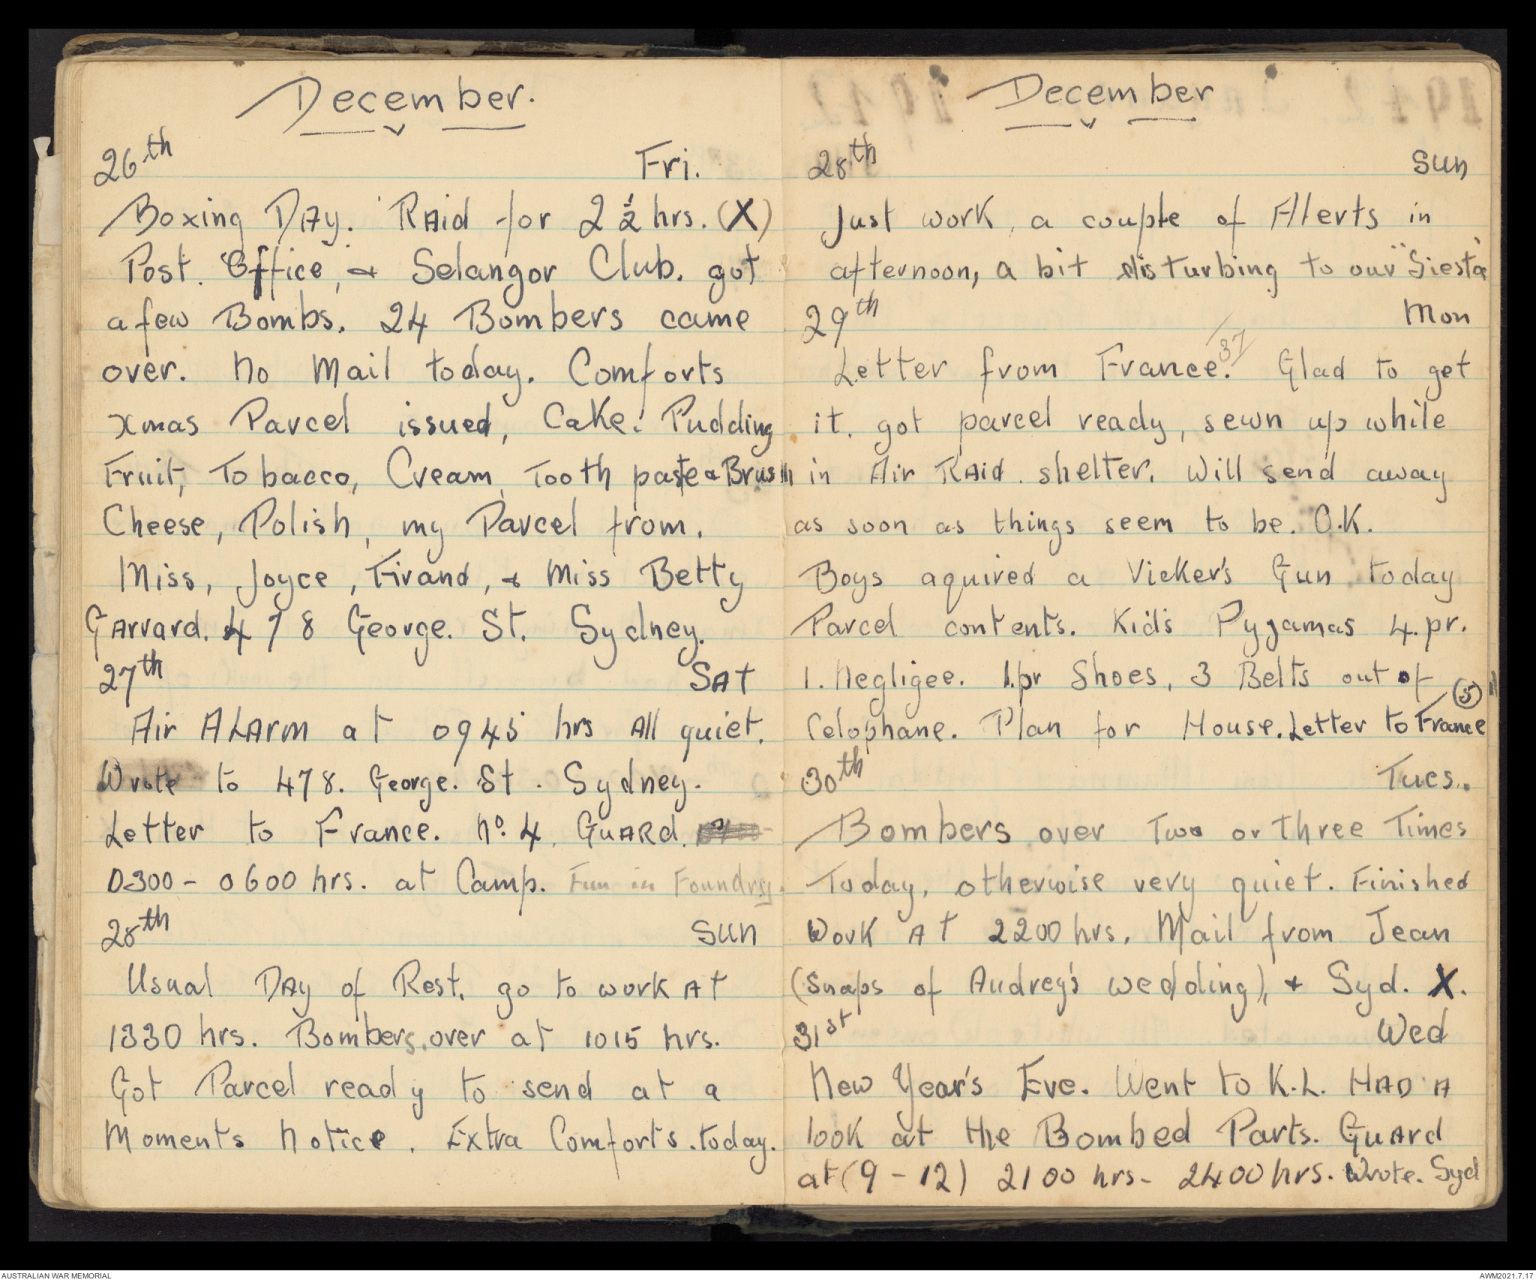 December.
26th Fri.
Boxing Day. Raid for 2 1/2 hrs. (X)
Post. Office, & Selangor Club. got
a few Bombs. 24 Bombers came
over. No Mail today. Comforts
Xmas Parcel issued, Cake. Pudding
Fruit, Tobacco, Cream, Tooth paste & Brush
Cheese, Polish, my Parcel from.
Miss, Joyce, Firand, & Miss Betty
Garrard. 478 George. St. Sydney.
27th SAT
Air ALARM at 0945 hrs All quiet.
Wrote to 478. George. St. Sydney.
Letter to France. No. 4. GUARD.
0300 - 0600 hrs. at Camp. Fun in Foundry.
28th SUN
Usual DAY of Rest. go to work AT
1330 hrs. Bombers over at 1015 hrs.
Got Parcel ready to send at a
Moments Notice. Extra Comforts. today.
December
28th SUN
Just work, a couple of Alerts in
afternoon, a bit disturbing to our "Siesta"
29th Mon
Letter from France. 37 Glad to get
it. got parcel ready, sewn up while
in Air RAid shelter. Will send away
as soon as things seem to be. O.K.
Boys aquired a Vicker's Gun today
Parcel contents. Kid's Pygamas 4.pr.
1. Negligee. 1.pr Shoes, 3 Belts out of
Celophane. Plan for House. Letter to France (5)
30th Tues.
Bombers over Two or three Times
Today, otherwise very quiet. Finished
Work AT 2200 hrs. Mail from Jean
(Snaps of Audrey's wedding), & Syd. X.
31st Wed
New Year's Eve. Went to K.L. HAD A
look at the Bombed Parts. Guard
at (9 - 12) 2100 hrs - 2400 hrs. Wrote. Syd
AUSTRALIAN WAR MEMORIAL
AWM2021.7.17